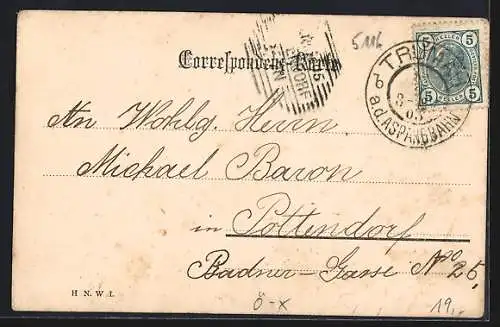 5116
Correspondenz-Karte
5 HELLER 5
5 5
TRUMAU
a.d. ASPANGBAHN
An Wohlg. Herrn
Michael Baron
in Pottendorf
Badner-Gasse No 25,
H. N. W. I.
Ö-X
19,-